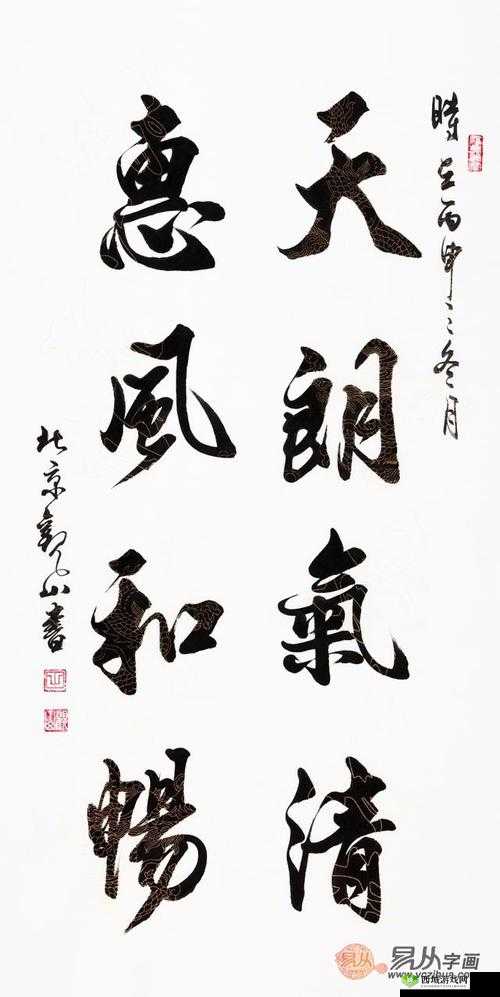 時在丙申之冬月
天朗氣清
惠風和暢
北京觀山書
易从字画
www.yczihua.com
西城游戏网